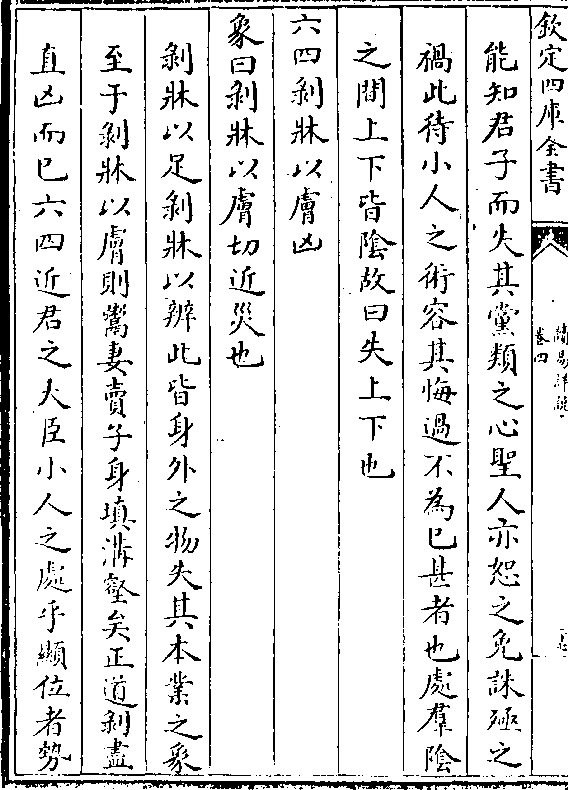 欽定四庫全書
讀易詳說
卷四
能知君子而失其黨類之心聖人亦恕之免誅殛之
禍此待小人之術容其悔過不為已甚者也處羣隂
之間上下皆隂故曰失上下也
六四剝牀以膚凶
象曰剝牀以膚切近災也
剝牀以足剝牀以辨此皆身外之物失其本業之象
至于剝牀以膚則鬻妻賣子身填溝壑矣正道剝盡
直凶而已六四近君之大臣小人之處乎顯位者勢